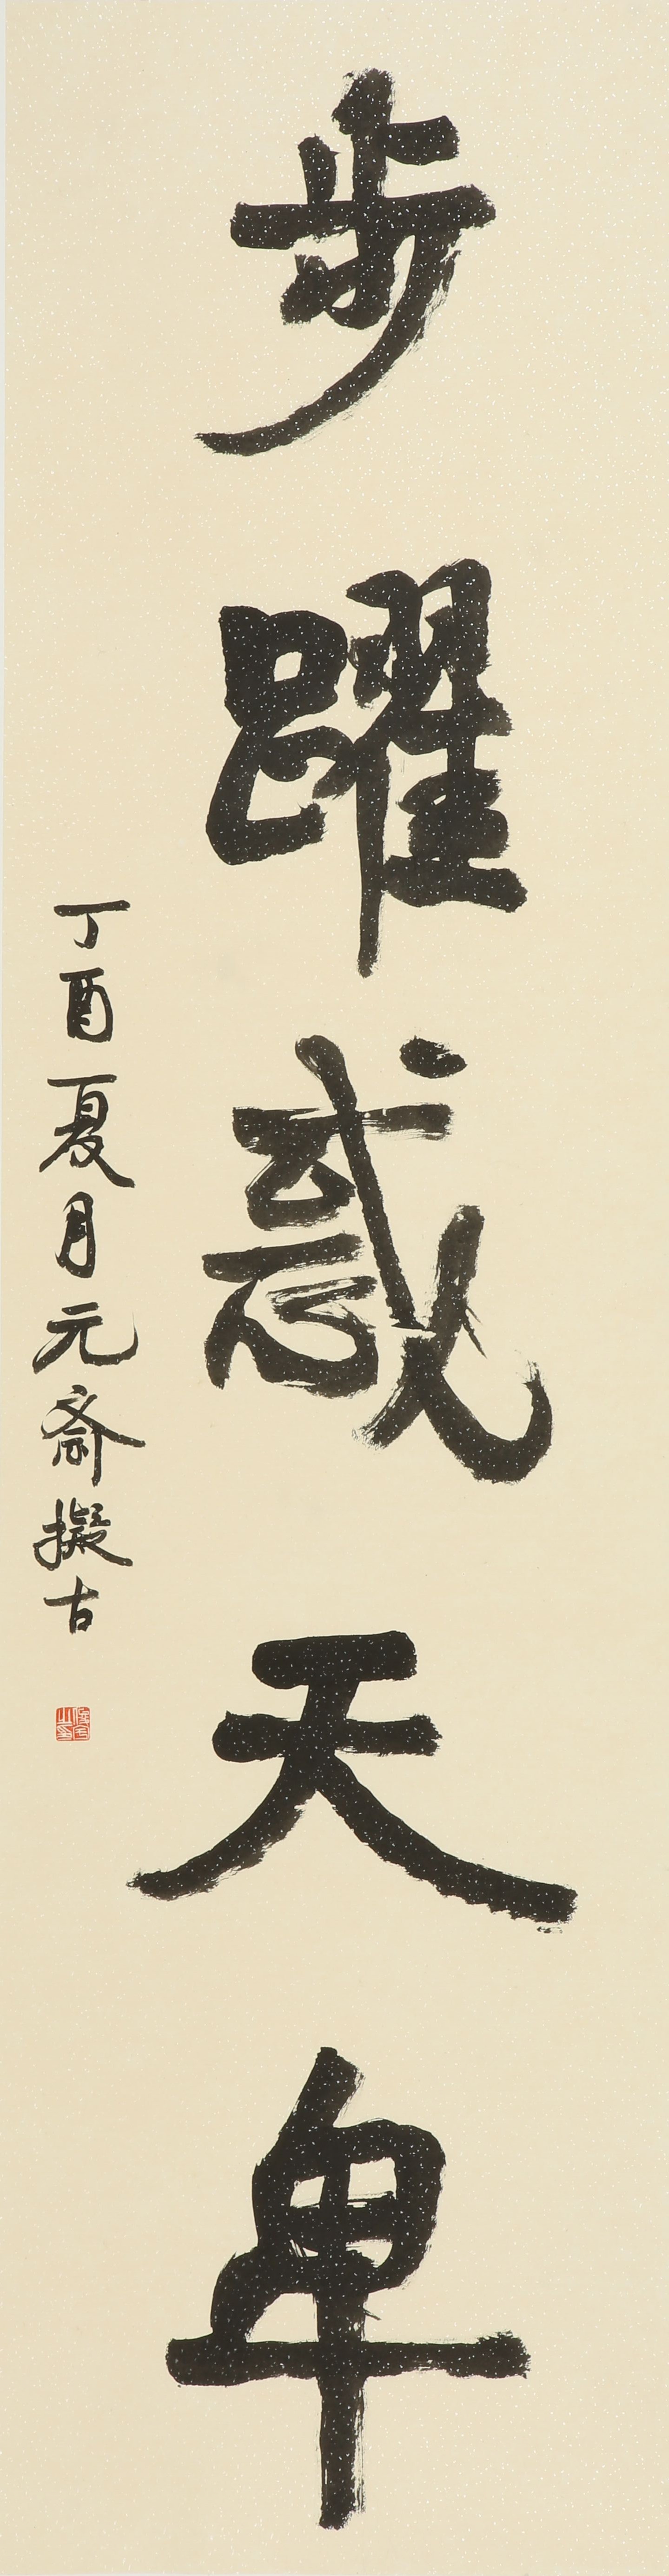 步躍惑天卑
丁酉夏月元齋擬古